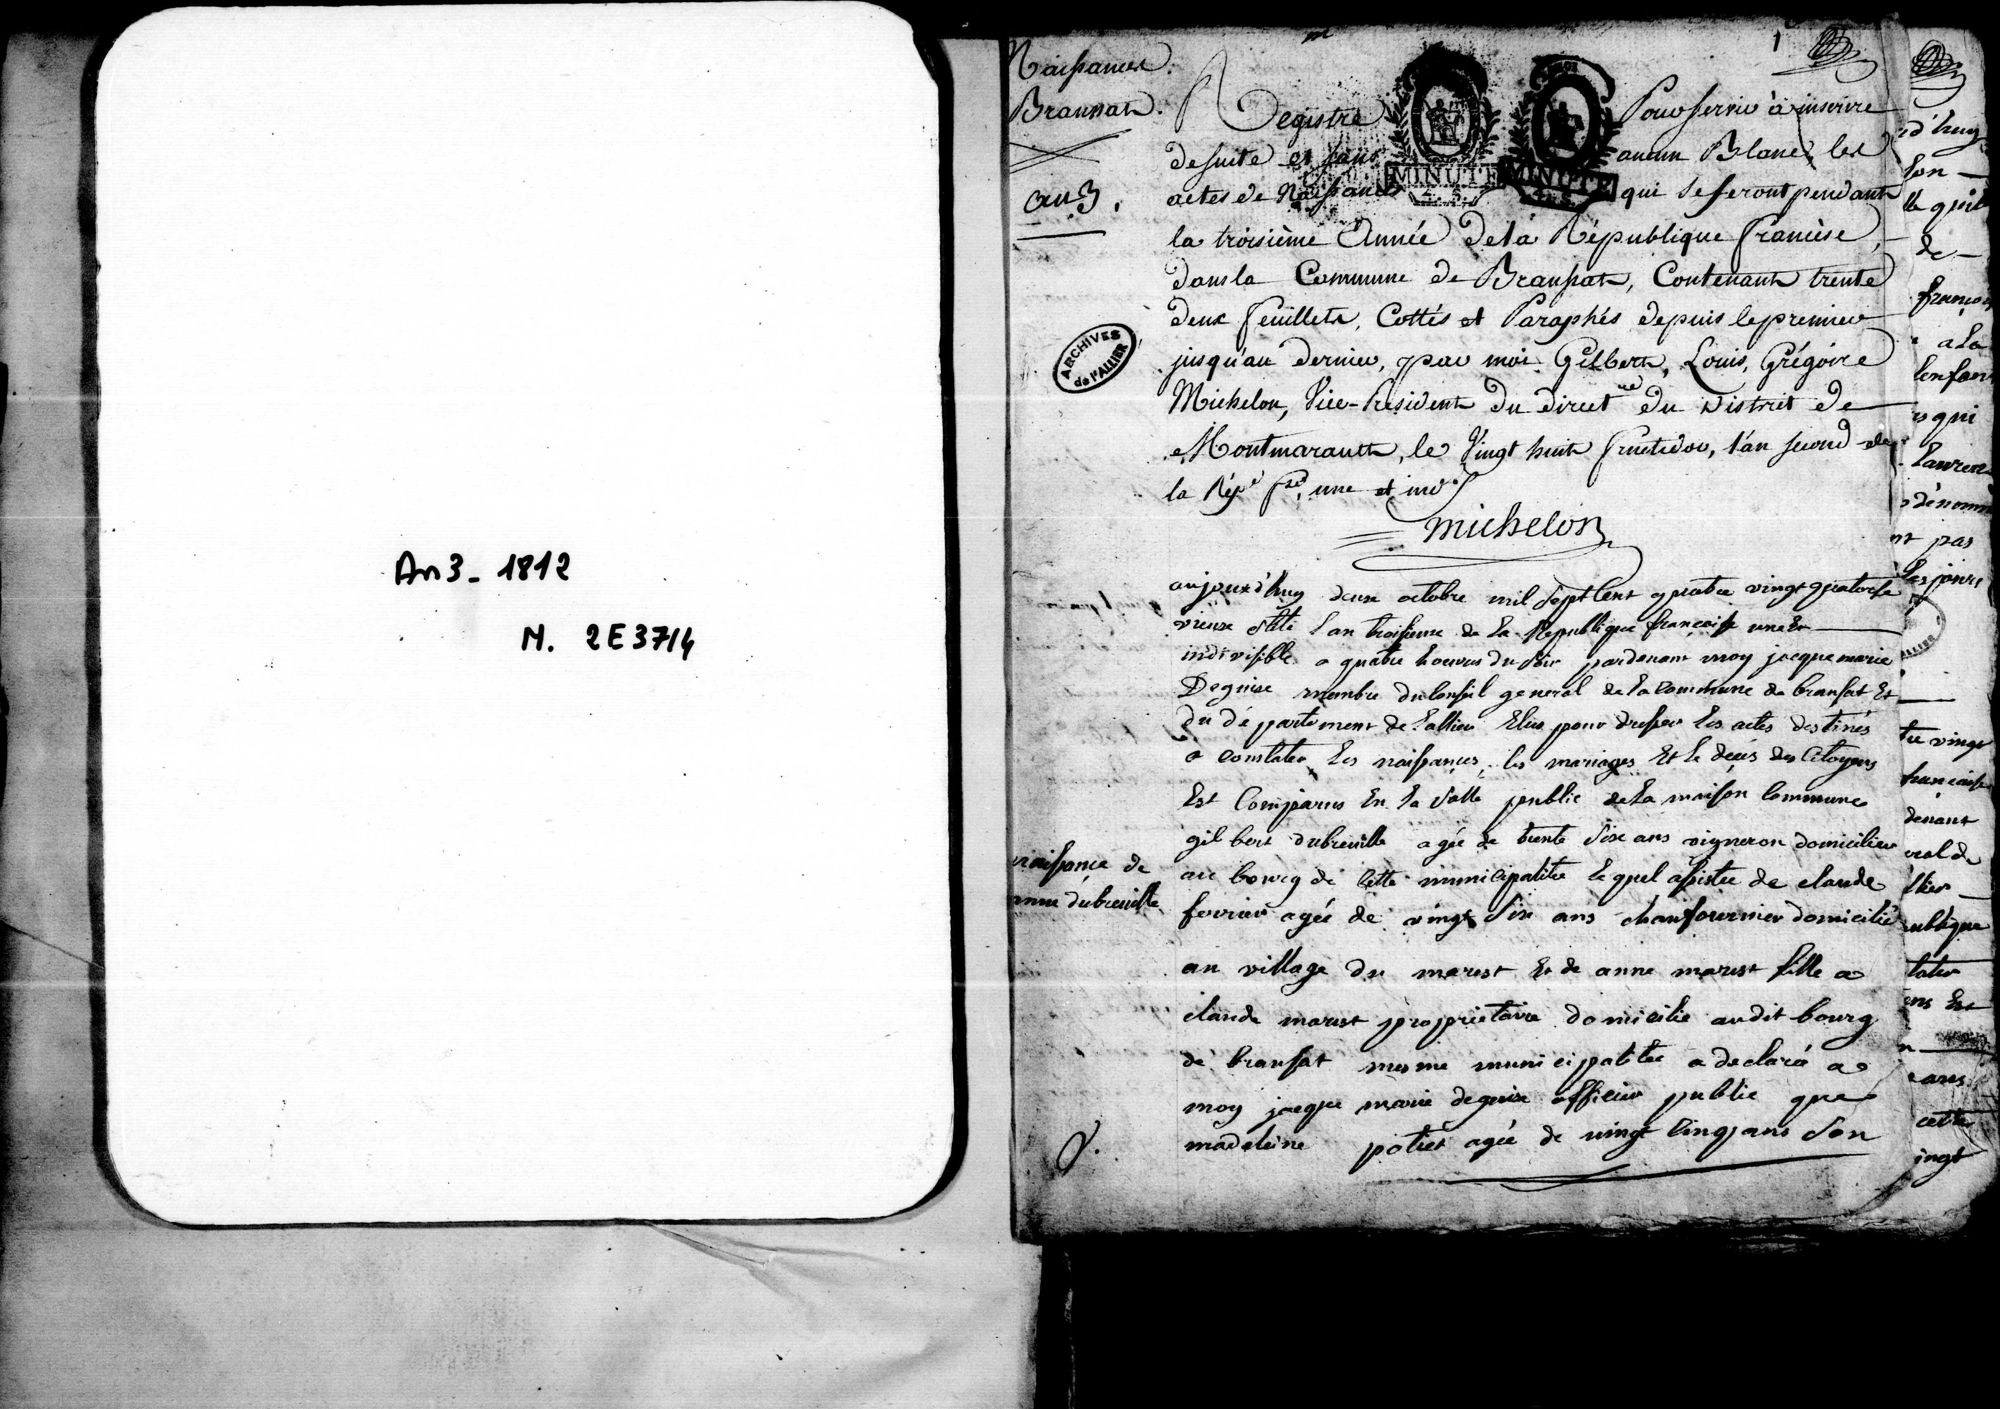 An 3 - 1812
N. 2E3714
Naissances
Bransat.
an 3.
1
Registre Pour servir à inscrire
de suite et sans aucun Blanc, les
actes de Naissance qui se feront pendant
la troisième Année de la République francèse,
dans la Commune de Bransat, Contenant trente
deux feuillets, Cottés et Paraphés depuis le premier
jusqu'au dernier, par moi Gilbert, Louis, Grégoire
Michelon, Vice-Président du direct.re du District de
Montmarault, le Vingt huit fructidor, l'an second de
la Rép.e f.se, une et ind.
Michelon
MINUTE
MINUTE
ARCHIVES
de l'ALLIER
aujourd'huy deux octobre mil sept cent quatre vingt quatorze
vieux stile l'an troisieme de la Republique françaisse une et
indivisible a quatre heures du soir pardevant moy jacque marie
Deguise membre du conseil general de la commune de bransat Et
du departement de l'allier Elus pour dresser les actes destinés
a constater les naissances, les mariages Et le deces des Citoyens
Est Comparus En la salle public de la maison commune
gilbert dubreuille agée de trente six ans vigneron domicilier
au bourg de cette municipalitee lequel assistee de claude
ferrier agée de vingt six ans chaufournier domicilié
au village du marest Et de anne marest fille a
claude marest proprietaire domicilié audit bourg
de bransat mesme municipalitee a declaré a
moy jacque marie deguise officier public que
madeleine potier agée de vingt cinq ans son
naissance de
anne dubreuille
d'huy
son
qu'il
de
françois
a la
l'enfant
qui
pas
les jours
vingt
française
devant
cette
vingt